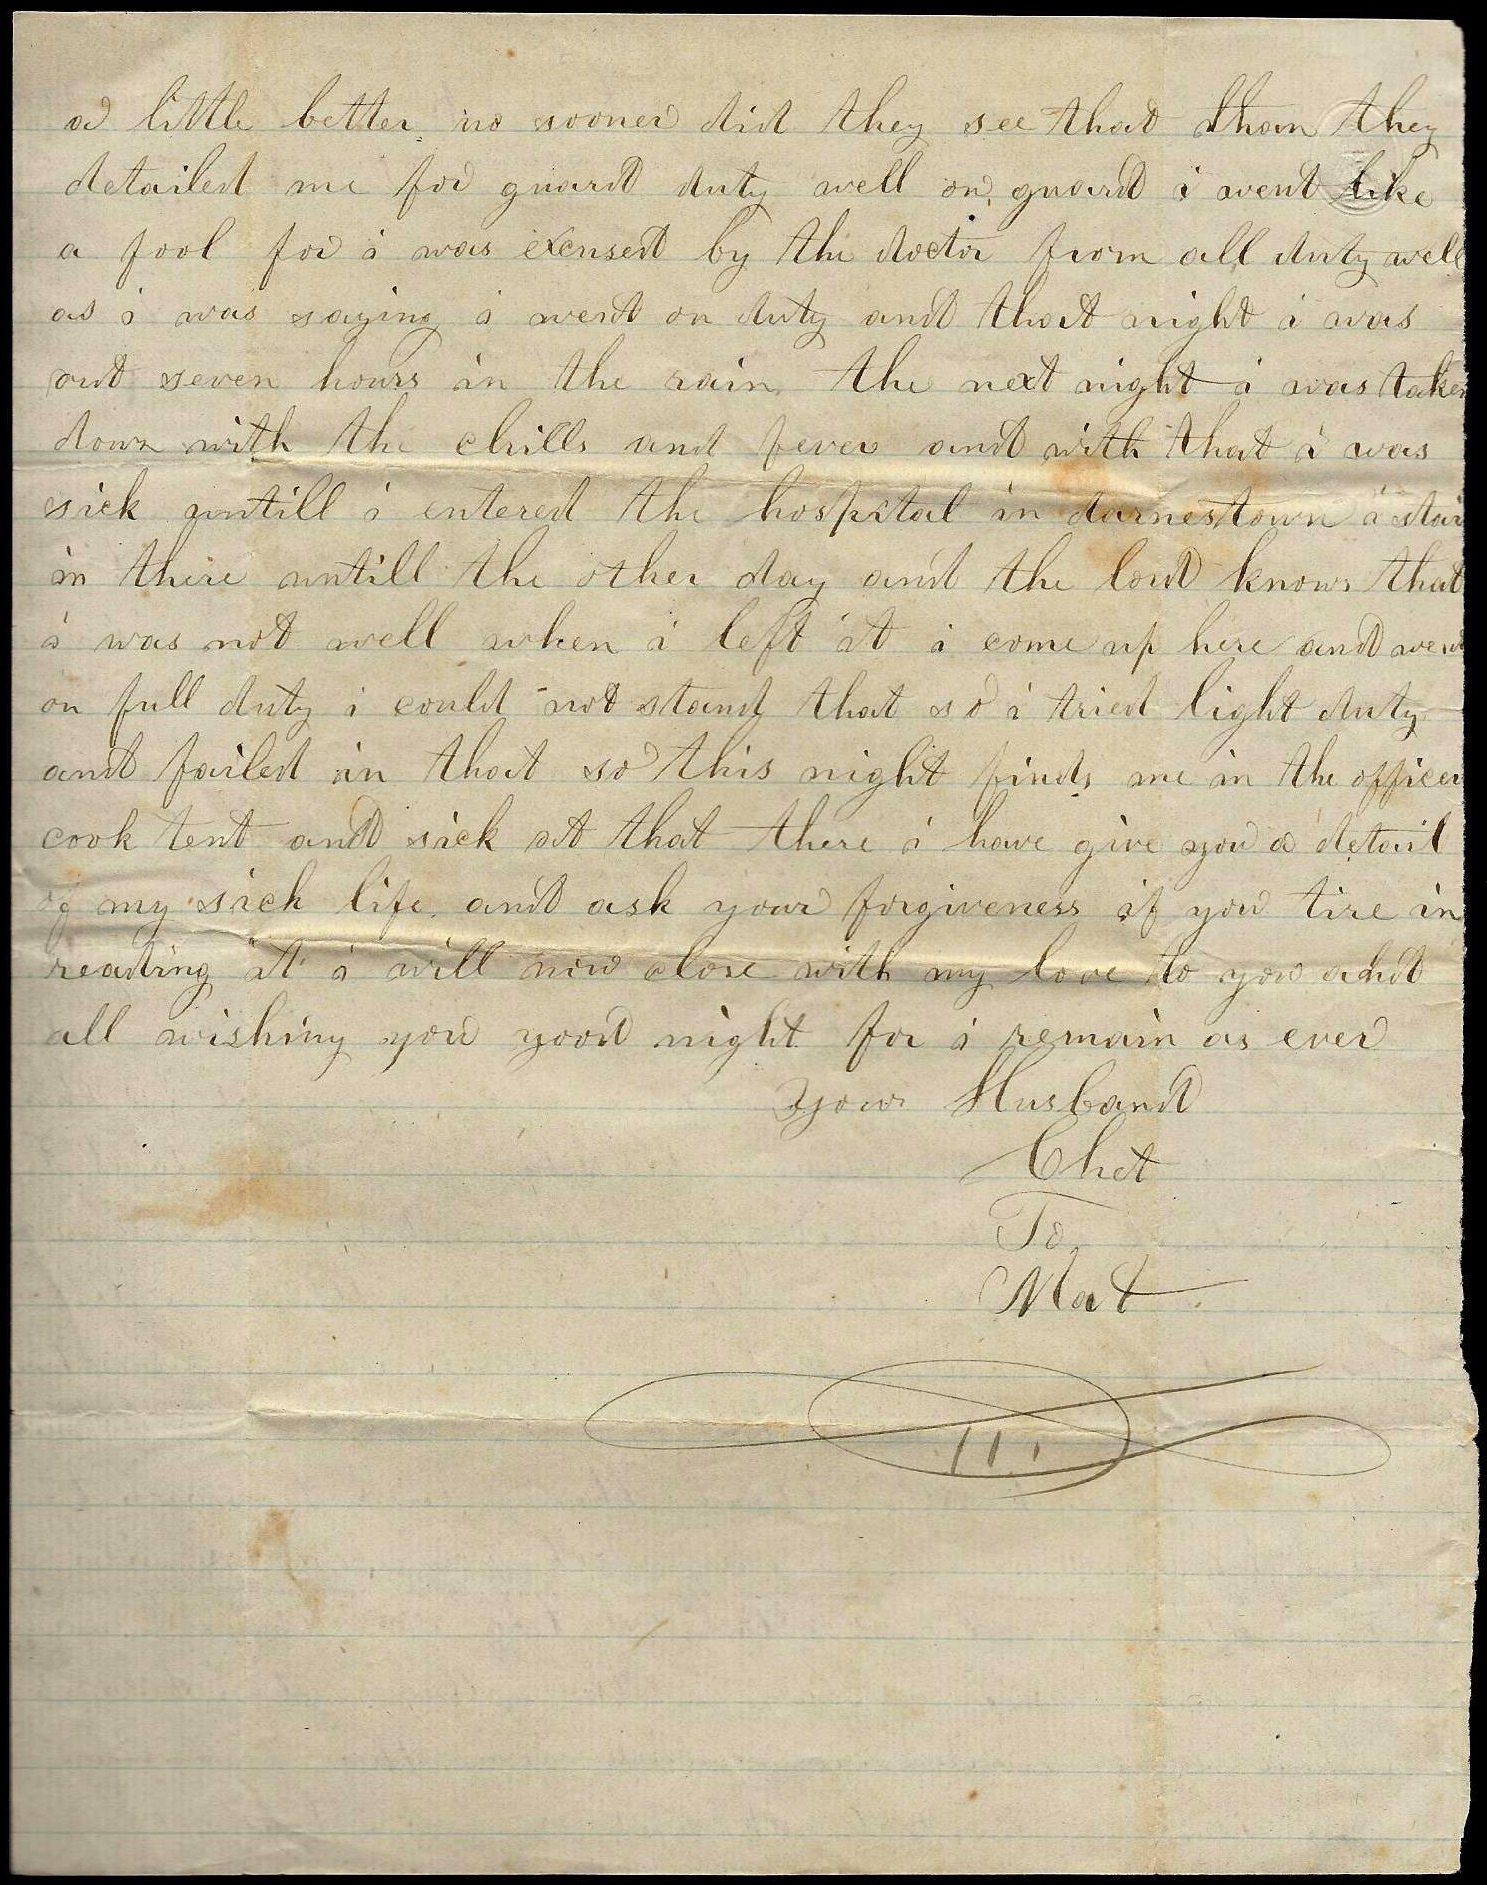 a little better no sooner did they see that than they
detailed me for guard duty well on guard i went like
a fool for i was excused by the doctor from all duty well
as i was saying i went on duty and that night i was
out seven hours in the rain. the next night i was taken
down with the chills and fever and with that i was
sick untill i entered the hospital in darnestown i staid
in there untill the other day and the lord knows that
i was not well when i left it i come up here and went
on full duty i could not stand that so i tried light duty
and failed in that so this night finds me in the officers
cook tent and sick at that there i have give you a detail
of my sick life and ask your forgiveness if you tire in
reading it i will now close with my love to you and
all wishing you good night for i remain as ever
your Husband
Chet
To
Mat